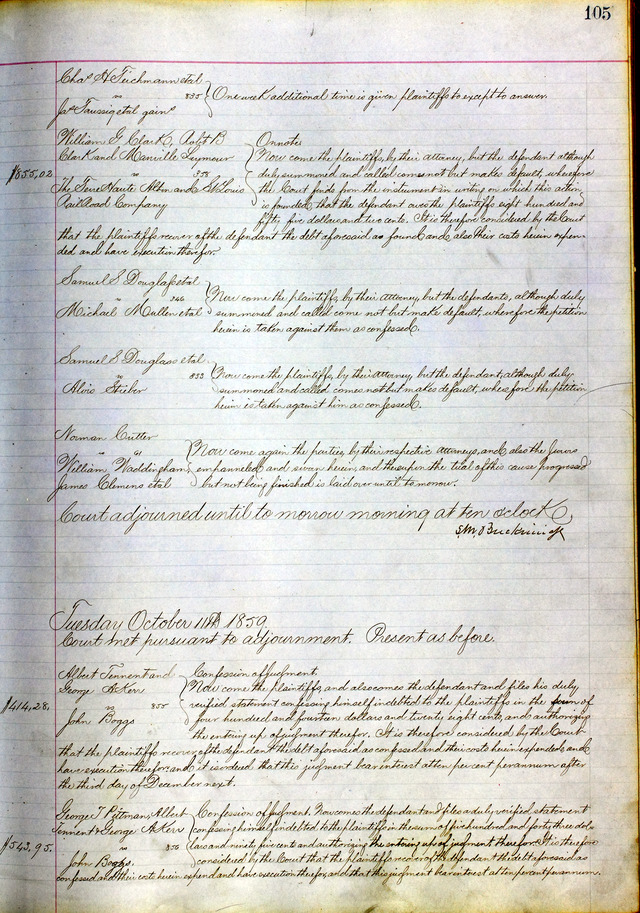 105
Chas H Teichmann etal
vs 835 One week additional time is given plaintiffs to except to answer.
Jas Taussig etal garns
William G Clark, Robt B On note
Clark and Manville Seymour Now come the plaintiffs, by their attorney, but the defendant although
$855,02 vs 358 duly summoned and called comes not but makes default, wherefore
The Terre Haute Alton and St Louis the Court finds from the instrument in writing on which this action
Rail Road Company is founded, that the defendant owes the plaintiffs eight hundred and
fifty five dollars and two cents. It is therefore considered by the Court
that the plaintiffs recover of the defendant the debt aforesaid as found and also their costs herein expen-
ded and have execution therefor.
Samuel S Douglass etal
vs 246 Now come the plaintiffs by their attorney, but the defendants, although duly
Michael Mullen etal summoned and called come not but make default, wherefore the petition
herein is taken against them as confessed.
Samuel S Douglass etal
vs 833 Now come the plaintiffs, by their attorney, but the defendant, although duly
Alois Stieber summoned and called comes not but makes default, wherefore the petition
herein is taken against him as confessed.
Norman Cutter
vs Now come again the parties, by their respective attorneys, and also the Jurors
William Waddingham empanneled and sworn herein, and thereupon the trial of this cause progressed
James Clemens etal but not being finished is laid over until to morrow.
Court adjourned until to morrow morning at ten oclock
Tuesday October 11th 1859
Court met pursuant to adjournment. Present as before.
Albert Tennent and Confession of judgment.
George A Kerr Now come the plaintiffs, and also comes the defendant and files his duly
$414,28. vs 855 verified statement confessing himself indebted to the plaintiffs in the sum of
John Boggs four hundred and fourteen dollars and twenty eight cents, and authorizing
the entering up of judgment therefor. It is therefore considered by the Court
that the plaintiffs recover of the defendant the debt aforesaid as confessed and their costs herein expended, and
have execution therefor, and it is ordered that this judgment bear interest at ten percent per annum after
the third day of December next.
George T Pitman, Albert Confession of judgment. Now comes the defendant and files a duly verified statement
Tennent & George A Kerr confessing himself indebted to the plaintiffs in the sum of five hundred and forty three dol-
$543,95. vs 856 lars and ninety five cents and authorizing the entering up of judgment therefor. It is therefore
John Boggs. considered by the Court that the plaintiffs recover of the defendant the debt aforesaid as
confessed and their costs herein expend and have execution therefor, and that this judgment bear interest at ten percent per annum.